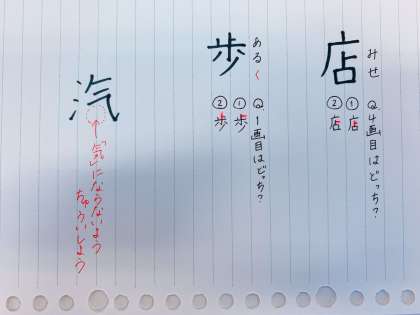 みせ
店
Q4画目はどっち?
①店
②店
あるく
歩
Q1画目はどっち?
①歩
②歩
汽
↑「気」にならないよう
ちゅういしよう